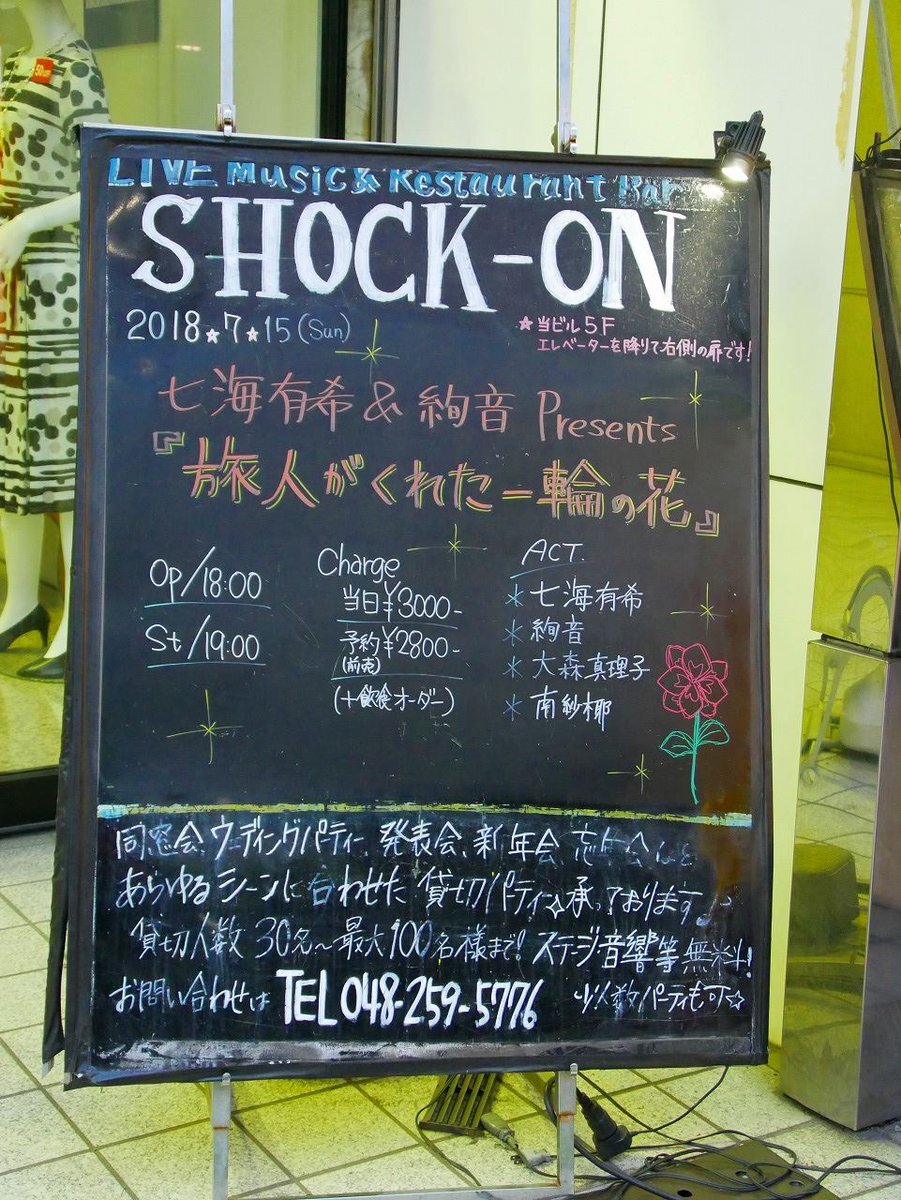 LIVE Music & Restaurant Bar
SHOCK-ON
2018★7★15(Sun)
★当ビル5F
エレベーターを降りて右側の扉です!
七海有希&絢音 Presents
『旅人がくれた一輪の花』
Op/18:00
St/19:00
Charge
当日¥3000-
予約¥2800-
(前売)
(+飲食オーダー)
ACT.
*七海有希
*絢音
*大森真理子
*南紗椰
同窓会、ウディングパティー、発表会、新年会、忘年会など
あらゆるシーンに合わせた貸切パティ☆承っております。
貸切人数30名〜最大100名様まで!ステージ音響等無料!
お問い合わせは TEL 048-259-5776 少人数パーティも可☆